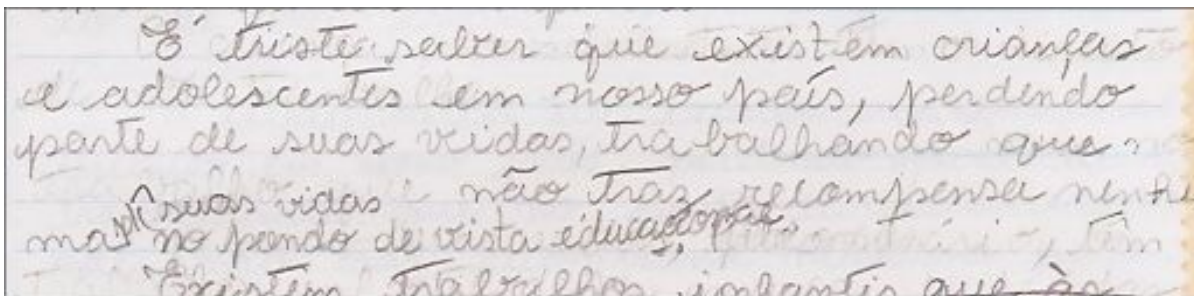 É triste saber que existem crianças
e adolescentes em nosso país, perdendo
parte de suas vidas, trabalhando que
não traz recompensa nenhu
suas vidas
ma no pondo de vista educacional,
Existem trabalhos infantis que às